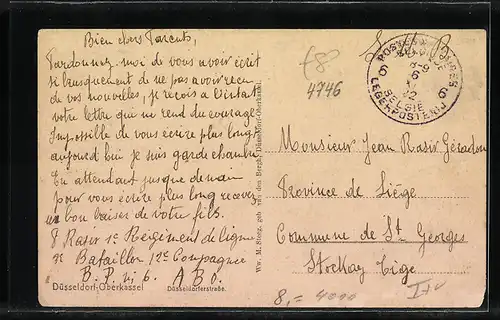 Bien chers Parents,
Pardonnez-moi de vous avoir écrit
si brusquement de ne pas avoir reçu
de vos nouvelles, je reçois à l'instant
votre lettre qui me rend du courage
Impossible de vous écrire plus long
aujourd'hui je suis garde chambre
En attendant jusque demain
pour vous écrire plus long recevez
un bon baiser de votre fils.
Rasir 1e Régiment de ligne
3e Bataillon 12e Compagnie
B. P. n. 6. A B O.
Düsseldorf-Oberkassel Düsseldorferstraße.
Ww. M. Steeg, geb van den Bergh, Düsseldorf-Oberkassel.
£8
4746
S. M.
POSTES MILITAIRES
BELGIQUE
6 6
BELGIE
LEGERPOSTERIJ
Monsieur Jean Rasir Gérardon
Province de Liége
Commune de St Georges
Stockay Tige
8,= 4000